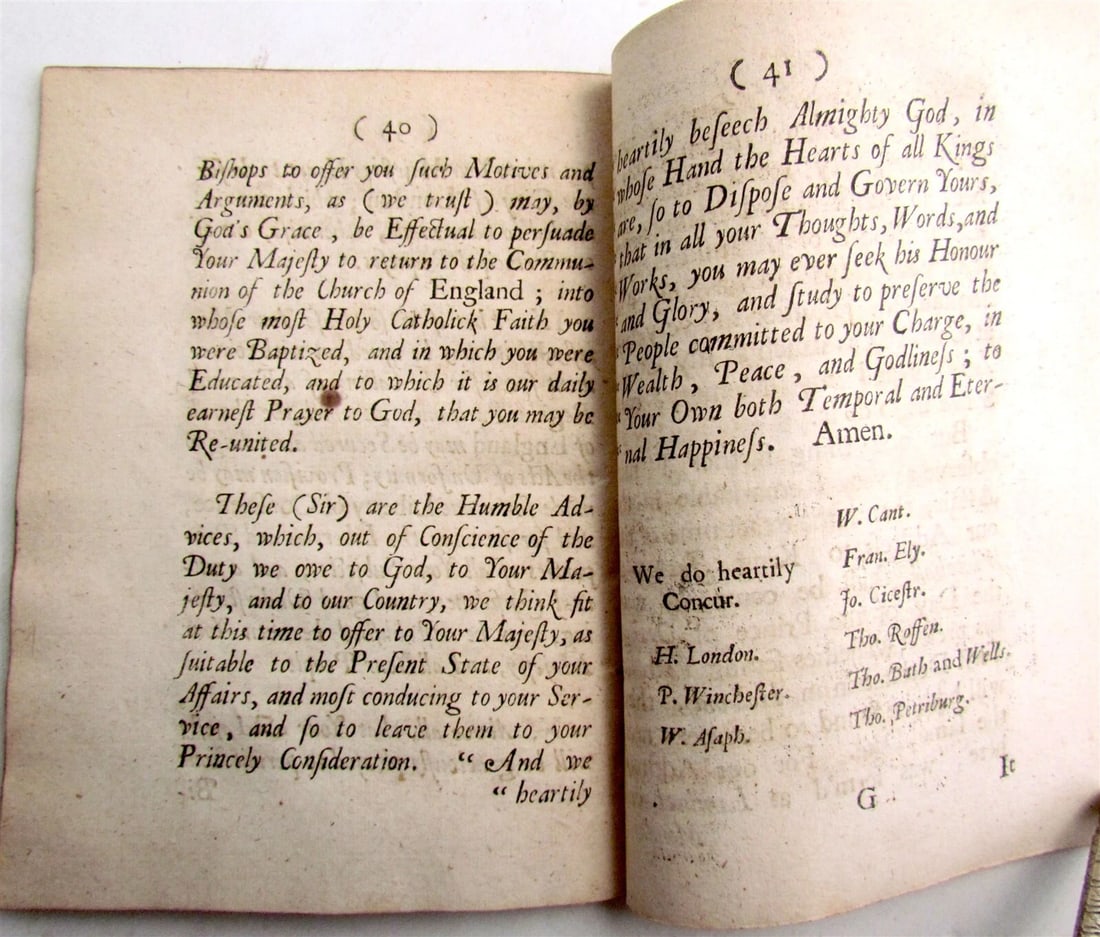 ( 40 )
Biſhops to offer you ſuch Motives and
Arguments, as ( we truſt ) may, by
God's Grace , be Effectual to perſuade
Your Majeſty to return to the Commu-
nion of the Church of England ; into
whoſe moſt Holy Catholick Faith you
were Baptized, and in which you were
Educated, and to which it is our daily
earneſt Prayer to God, that you may be
Re-united.
Theſe (Sir) are the Humble Ad-
vices, which, out of Conſcience of the
Duty we owe to God, to Your Ma-
jeſty, and to our Country, we think fit
at this time to offer to Your Majeſty, as
ſuitable to the Preſent State of your
Affairs, and moſt conducing to your Ser-
vice, and ſo to leave them to your
Princely Conſideration. “ And we
“ heartily
( 41 )
heartily beſeech Almighty God, in
whoſe Hand the Hearts of all Kings
are, ſo to Diſpoſe and Govern Yours,
that in all your Thoughts, Words, and
Works, you may ever ſeek his Honour
and Glory, and ſtudy to preſerve the
People committed to your Charge, in
Wealth , Peace , and Godlineſs ; to
Your Own both Temporal and Eter-
nal Happineſs. Amen.
W. Cant.
Fran. Ely.
Jo. Ciceſtr.
Tho. Roffen.
Tho. Bath and Wells.
Tho. Petriburg.
We do heartily
Concur.
H. London.
P. Wincheſter.
W. Aſaph.
G
It